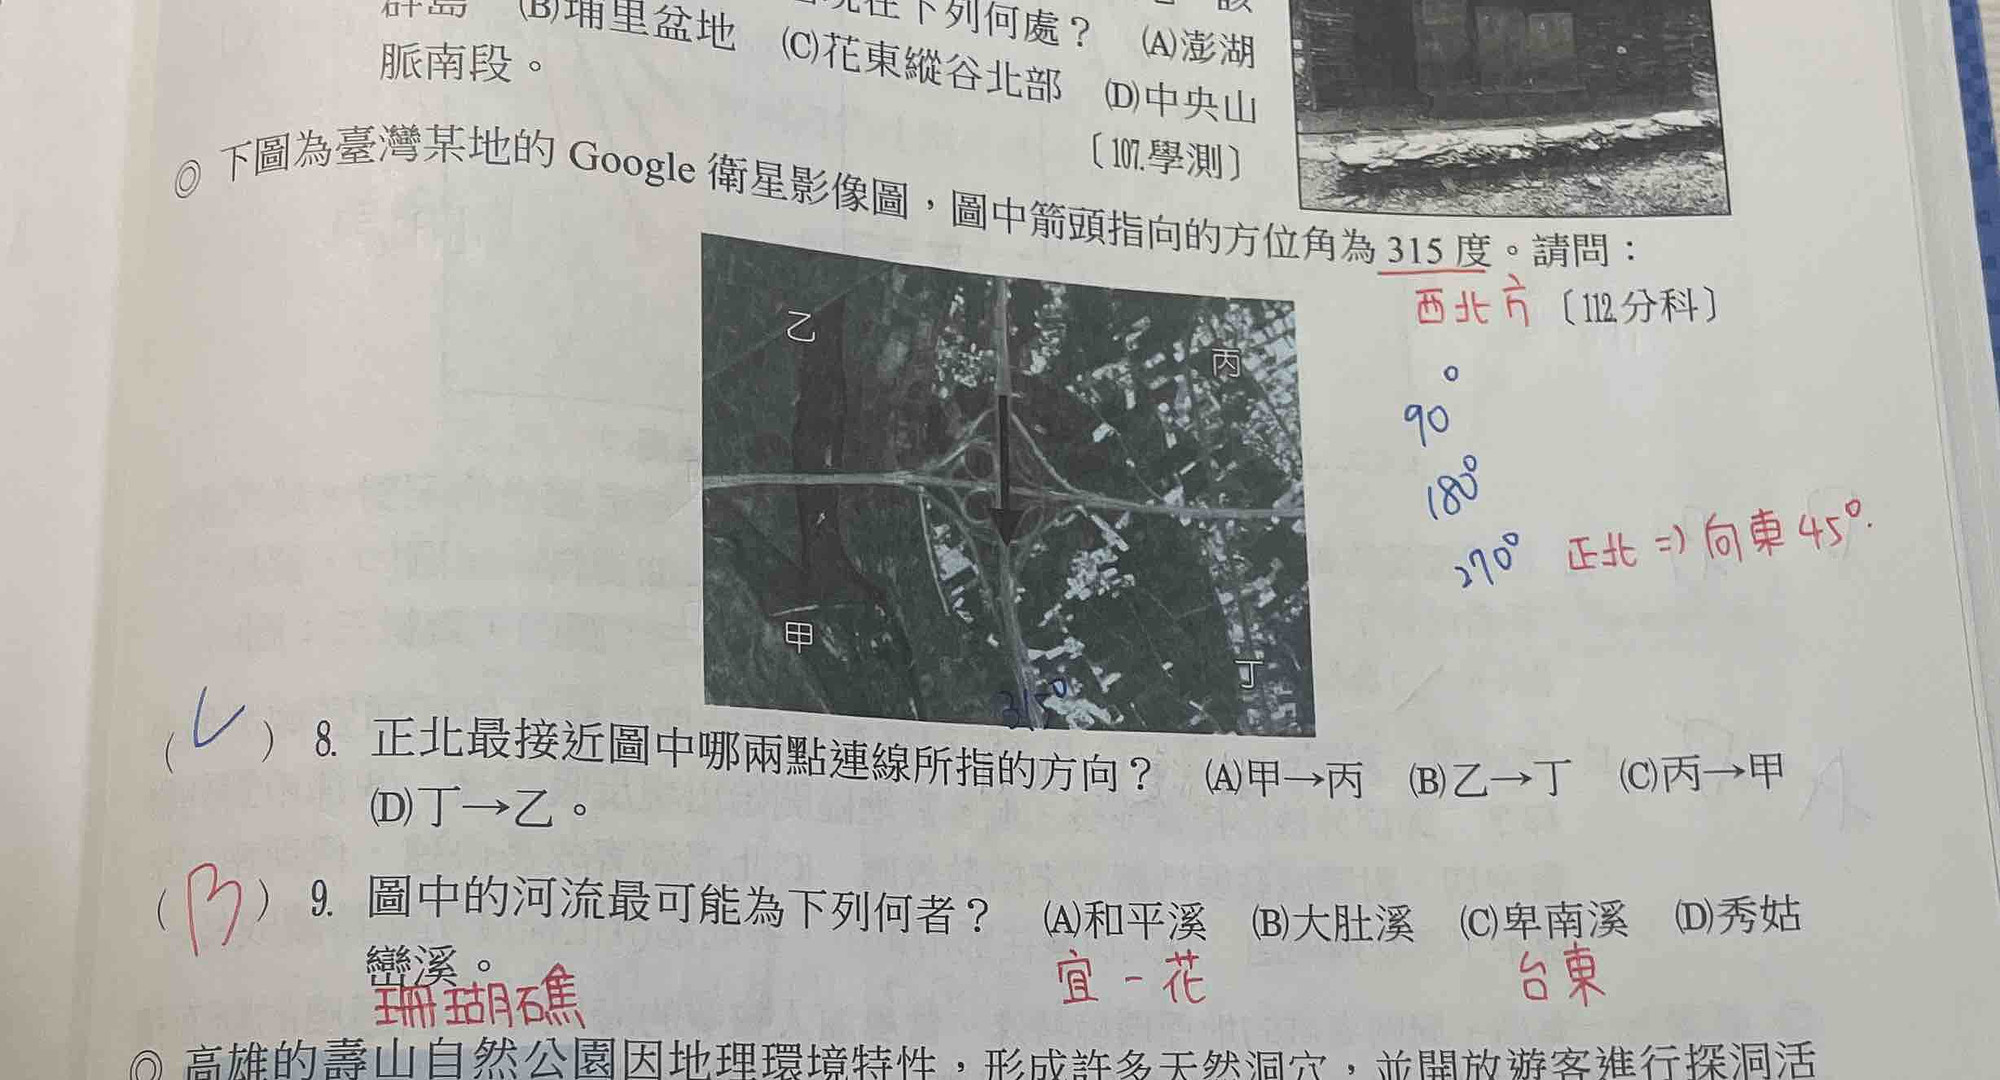 下列何處？ (A)澎湖
群島 (B)埔里盆地 (C)花東縱谷北部 (D)中央山
脈南段。
〔107.學測〕
◎ 下圖為臺灣某地的 Google 衛星影像圖，圖中箭頭指向的方位角為 315 度。請問：
西北方 〔112.分科〕
乙
丙
甲
丁
315°
0
90
180°
270° 正北 => 向東 45°.
( ) 8. 正北最接近圖中哪兩點連線所指的方向？ (A)甲→丙 (B)乙→丁 (C)丙→甲
(D)丁→乙。
(B) 9. 圖中的河流最可能為下列何者？ (A)和平溪 (B)大肚溪 (C)卑南溪 (D)秀姑
巒溪。
宜-花 台東
珊瑚礁
◎ 高雄的壽山自然公園因地理環境特性，形成許多天然洞穴，並開放遊客進行探洞活